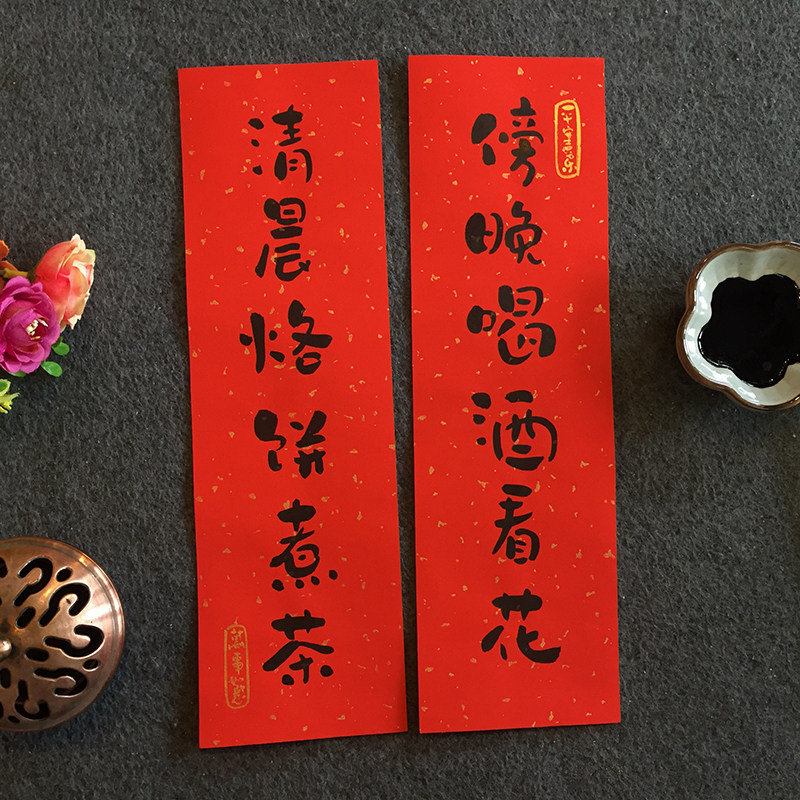 傍晚喝酒看花
清晨烙饼煮茶